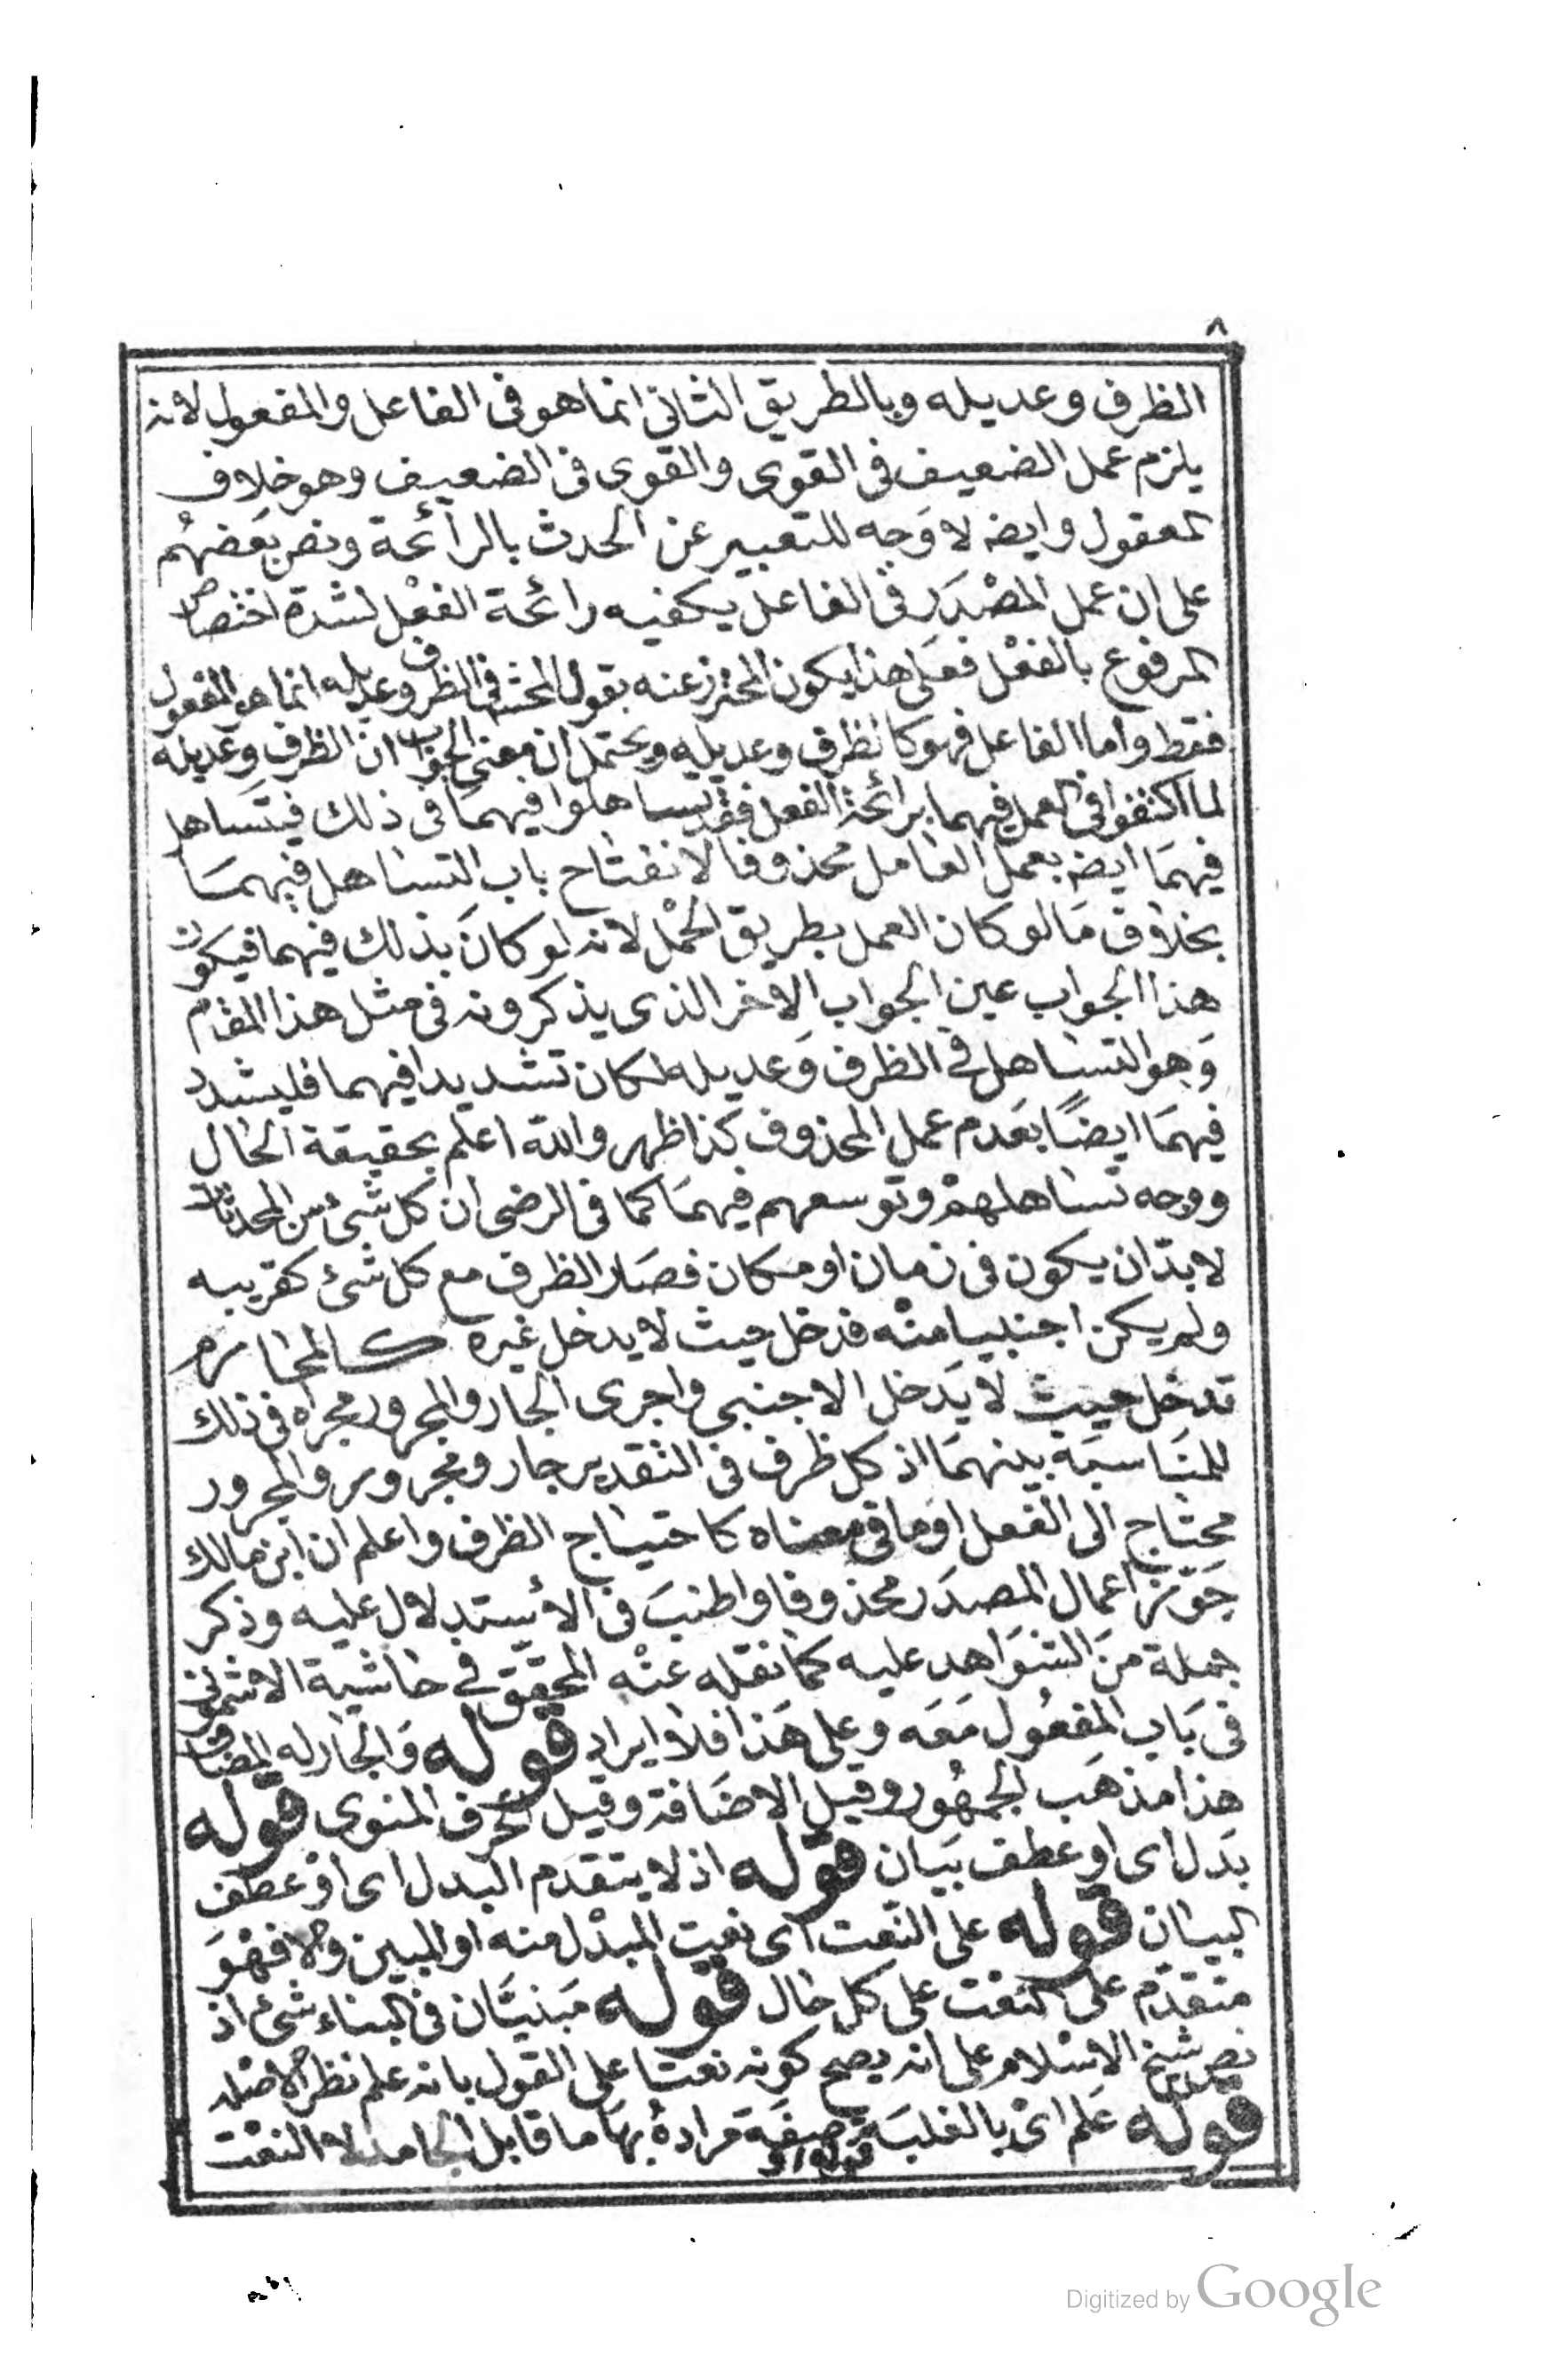 ٨
الظرف وعديله وبالطريق الثاني انما هو في الفاعل والمفعول لانه
يلزم عمل الضعيف في القوى والقوى في الضعيف وهو خلاف
المعقول وايضه لا وَجه للتعبير عن الحدث بالرائحة ونص بعَضهُم
على ان عمل المصْدَر في الفاعل يكفيه رائحة الفعْل لشدة اختصاص
المرفوع بالفعْل فعَلى هذا يكون المحترز عنه بقول المحشى في الظرف وعديله انما هو المفعول
فقط واما الفاعل فهو كالظرف وعديله ويحتمل ان معنى الجواب ان الظرف وعديله
لما اكتفوا في العمل فيهما برائحة الفعل فقد تساهلوا فيهمَا في ذلك فيتسَاهل
فيهمَا ايضه بعمل العامل محذوفا لانفتاح باب التساهل فيهمَا
بخلاف مَا لو كان العمل بطريق الحمْل لانه لو كانَ بذلك فيهما فيكون
هذا الجواب عين الجواب الاخر الذى يذكرونه في مثل هذا المقام
وَهو التساهل في الظرف وَعديله لكان تشديدا فيهما فليشدد
فيهمَا ايضًا بعَدم عمل المحذوف كذا ظهر والله اعلم بحقيقة الحال
ووجه تساهلهمْ وتوسعهم فيهمَا كما في الرضى ان كل شئ من المحدثات
لا بدّ ان يكون في زمان او مكان فصَار الظرف مع كل شئ كقريبه
ولم يكن اجنبيا منْه فدخل حيث لا يدخل غيره كالمحارم
تدخل حيث لا يَدخل الاجنبى واجرى الجار والمجرور مجراه في ذلك
للمنَاسبَة بينهمَا اذ كل ظرف في التقدير جار ومجرور والمجرور
محتاج الى الفعل او ما في معناه كاحتياج الظرف واعلم ان ابن مالك
جَوّز اعمال المصدَر محذوفا واطنبَ في الاستدلال عليه وذكر
جملة منَ الشوَاهد عليه كما نقله عنْه المحقق في حاشية الاشمونى
في بَاب المفعُول مَعَه وعلى هَذا فلا ايراد قوله وَالجار له المضاف
هذا مذهَب الجمهُور وقيل الاضَافة وقيل الحرف المنوى قوله
بدَل اى او عطف بيَان قوله اذ لا يتقدم البدل اى اوْ عطف
البيان قوله على النّعت اى نعت المبدْل منه او المبين والا فهْوَ
متقدّم على النعت على كل حال قوله مَبنيّان في البناء شئ اذ
نص شيخ الاسْلام على انه يصح كونه نعتا على القول بانه علم نظر الاصله
قوله عَلم اىْ بالغلبَة قوله او صفَة مرادهُ بهَا ما قابل الجامد لا النعْت
Digitized by Google